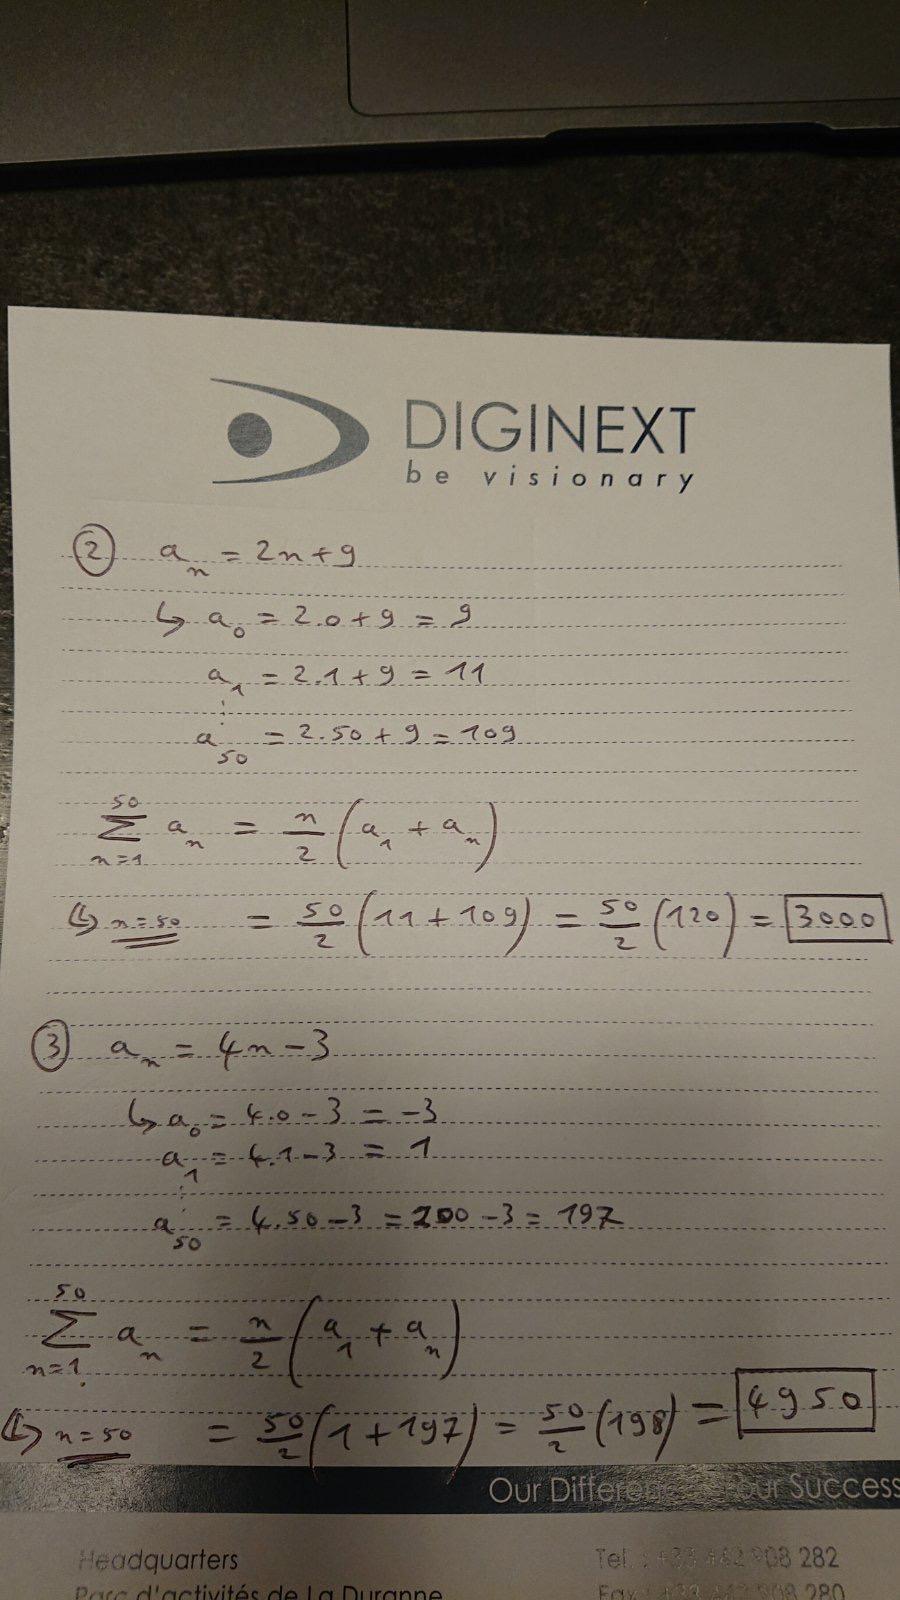 DIGINEXT
be visionary
② aₙ = 2n + 9
↳ a₀ = 2.0 + 9 = 9
a₁ = 2.1 + 9 = 11
⋮
a₅₀ = 2.50 + 9 = 109
50
∑ aₙ = n/2 (a₁ + aₙ)
n=1
(↳ n=50 = 50/2 (11 + 109) = 50/2 (120) = 3000
③ aₙ = 4n - 3
↳ a₀ = 4.0 - 3 = -3
a₁ = 4.1 - 3 = 1
⋮
a₅₀ = 4.50 - 3 = 200 - 3 = 197
50
∑ aₙ = n/2 (a₁ + aₙ)
n=1.
(↳ n=50 = 50/2 (1 + 197) = 50/2 (198) = 4950
Our Difference our Success
Headquarters
Tel. : +33 442 908 282
Parc d'activités de La Duranne
Fax : +33 442 908 280